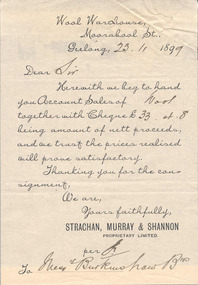 Wool Warehouse,
Moorabool St.,
Geelong, 23. 11 1899
Dear Sir
Herewith we beg to hand
you Account Sales of Wool
together with Cheque £ 33. 4. 8
being amount of nett proceeds,
and we trust the prices realised
will prove satisfactory.
Thanking you for the con-
signment,
We are,
Yours faithfully,
STRACHAN, MURRAY & SHANNON
PROPRIETARY LIMITED.
per
To Messrs Burkinshaw Bros